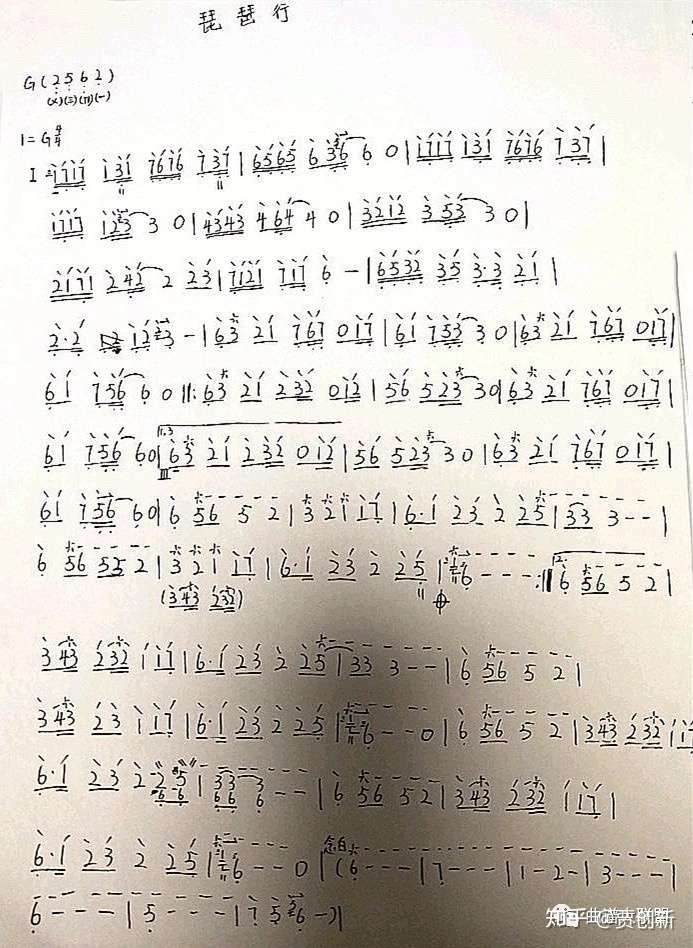 琵琶行
G(2 5 6 2)
(乂)(三)(八)(一)
1=G 4/4
I 1717 131 7676 737 | 6565 636 6 0 | 1717 131 7676 737 |
1717 123 3 0 | 4343 464 4 0 | 3212 353 3 0 |
2171 242 2 23 | 7121 717 6 - | 6532 35 3·3 21 |
2·2 12 3 - | 63 21 767 017 | 61 753 3 0 | 63 21 767 017 |
61 756 6 0 ‖: 63 21 232 012 | 56 523 30 | 63 21 767 017 |
61 756 60 | 1,3 63 21 232 012 | 56 523 30 | 63 21 767 017 |
61 756 60 | 6 56 5 2 | 3 21 17 | 6·1 23 2 25 | 33 3 - - |
6 56 55 2 | 3 21 17 | 6·1 23 2 25 | 6 - - - :‖ 2. 6 56 5 2 |
(343 232)
343 232 1 17 | 6·1 23 2 25 | 33 3 - - | 6 56 5 2 |
343 23 1 17 | 6·1 23 2 25 | 6 - - 0 | 6 56 5 2 | 343 232 1 17
6·1 23 2 25 | 33 3 - - | 6 56 52 | 343 232 1 17 |
6 6 66 6
6·1 23 2 25 | 6 - - 0 | 念白 (6 - - - | 7 - - - | 1 - 2 - | 3 - - - |
6 - - - | 5 - - - | 7 5 6 -)|
知乎 @贾创新